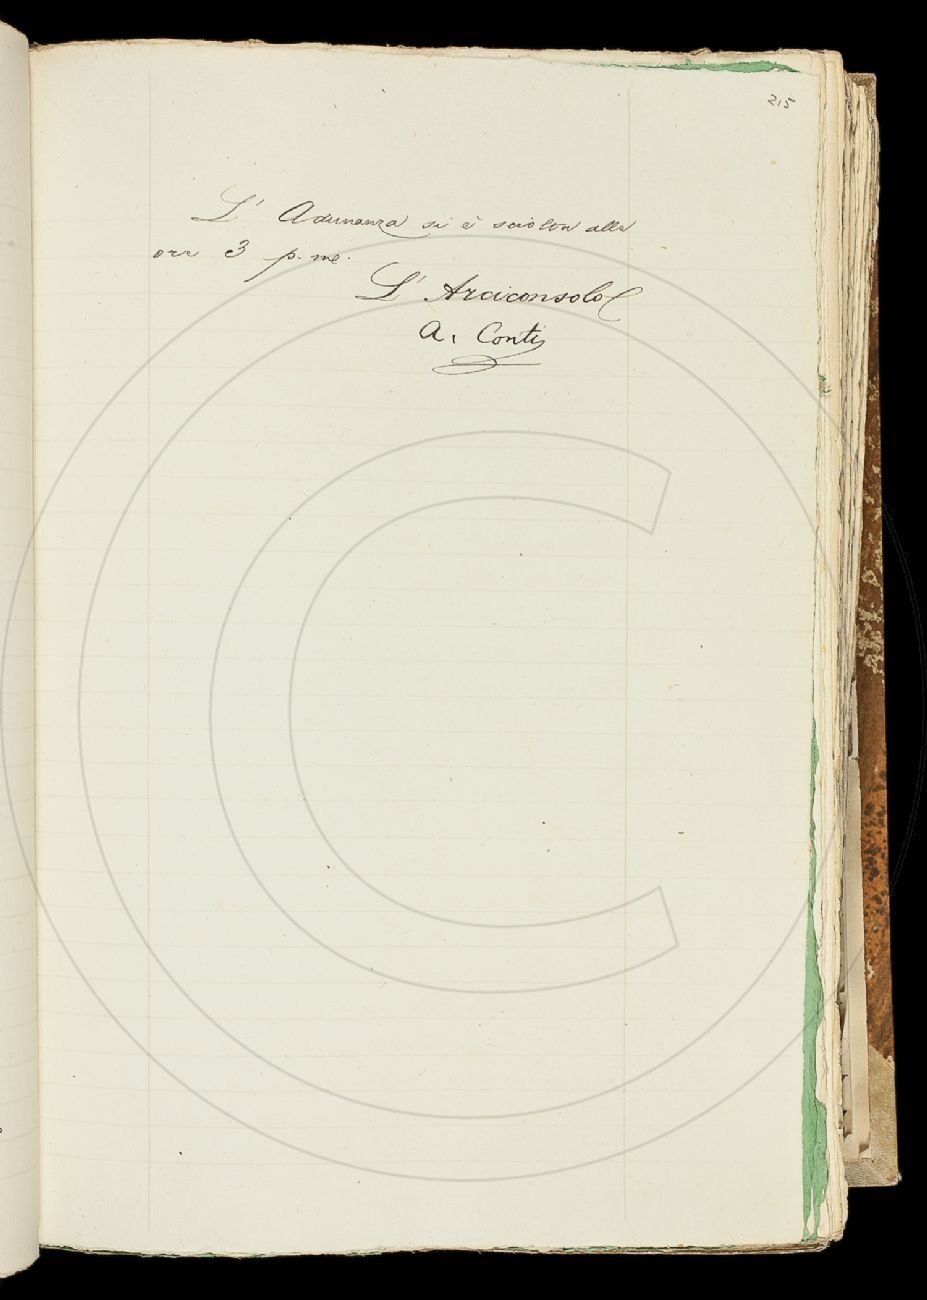 215
L' Adunanza si è sciolta alle
ore 3 p. me.
L' Arciconsolo
A. Conti